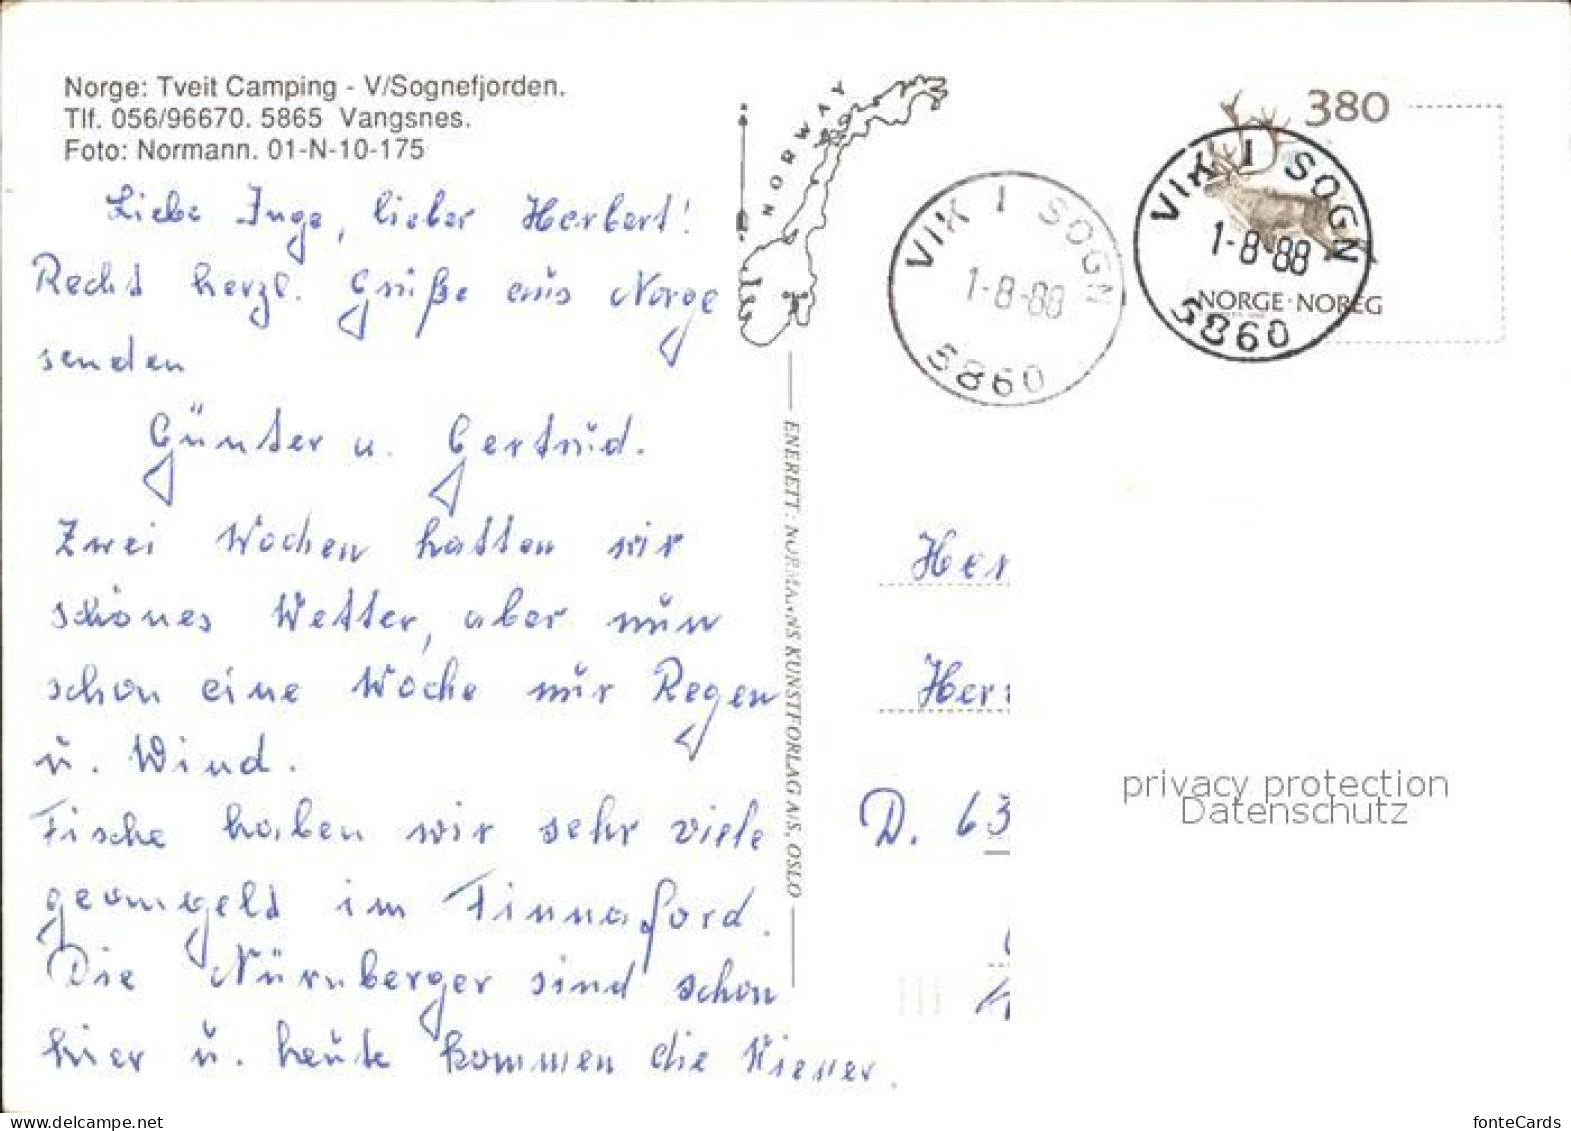 Norge: Tveit Camping - V/Sognefjorden.
Tlf. 056/96670. 5865 Vangsnes.
Foto: Normann. 01-N-10-175
Liebe Inge, lieber Herbert!
Recht herzl. Grüße aus Norge
senden
Günter u. Gertrud.
Zwei Wochen hatten wir
schönes Wetter, aber nun
schon eine Woche nur Regen
u. Wind.
Fische haben wir sehr viele
geangeld im Finnafjord.
Die Nürnberger sind schon
hier u. heute kommen die Wiener.
NORWAY
ENERETT: NORMANNS KUNSTFORLAG A/S, OSLO
VIK I SOGN
1-8-88
5860
380
VIK I SOGN
1-8-88
NORGE·NOREG
5860
Her
Her
D. 63
privacy protection
Datenschutz
www.delcampe.net
fonteCards